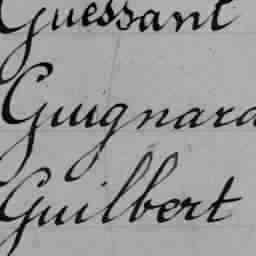 Guessant
Guignard
Guilbert